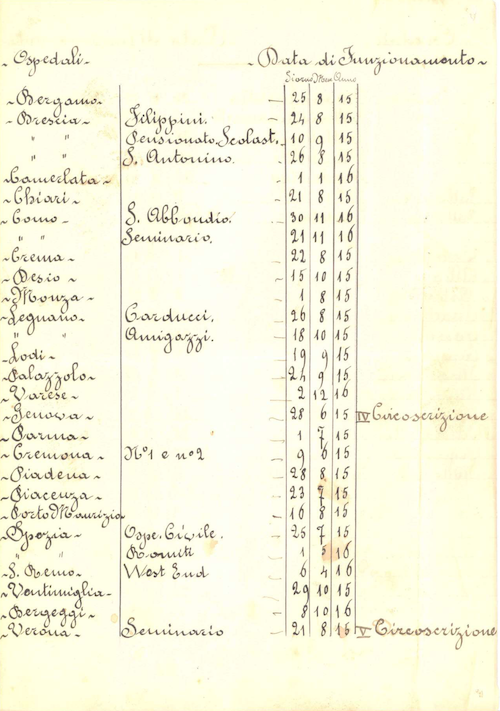 Ospedali - Data di Funzionamento
Giorno Mese Anno
Bergamo - 25 8 15
Brescia - Filippini. 24 8 15
" " Pensionato Scolast. 10 9 15
" " S. Antonino. 26 8 15
Camerlata 1 1 16
Chiari 21 8 15
Como - S. Abbondio. 30 11 16
" " Seminario. 21 11 16
Crema - 22 8 15
Desio - 15 10 15
Monza - 1 8 15
Legnano - Carducci. 26 8 15
" " Amigazzi. 18 10 15
Lodi - 19 9 15
Palazzolo 24 9 15
Varese - 2 12 16
Genova - 28 6 15 IV Circoscrizione
Parma - 1 7 15
Cremona - N°1 e n°2 9 6 15
Piadena - 28 8 15
Piacenza - 23 7 15
Porto Maurizio 16 8 15
Spezia - Ospe. Civile. 25 7 15
" " Romiti 1 5 16
S. Remo - West End 6 4 16
Ventimiglia - 29 10 15
Bergeggi - 8 10 16
Verona - Seminario 21 8 15 V Circoscrizione